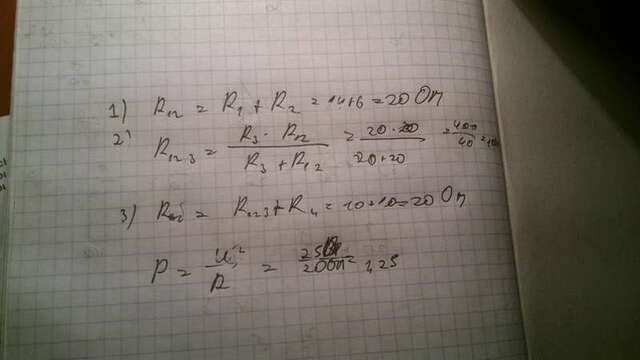 1) R₁₂ = R₁ + R₂ = 14+6 = 20 Om
2) R₁₂₃ = R₃ · R₁₂ / R₃ + R₁₂ = 20 · 20 / 20 + 20 = 400 / 40 = 10
3) = R₁₂₃ + R₄ = 10 + 10 = 20 Om
P = U² / R = 25 / 20 Om = 1,25